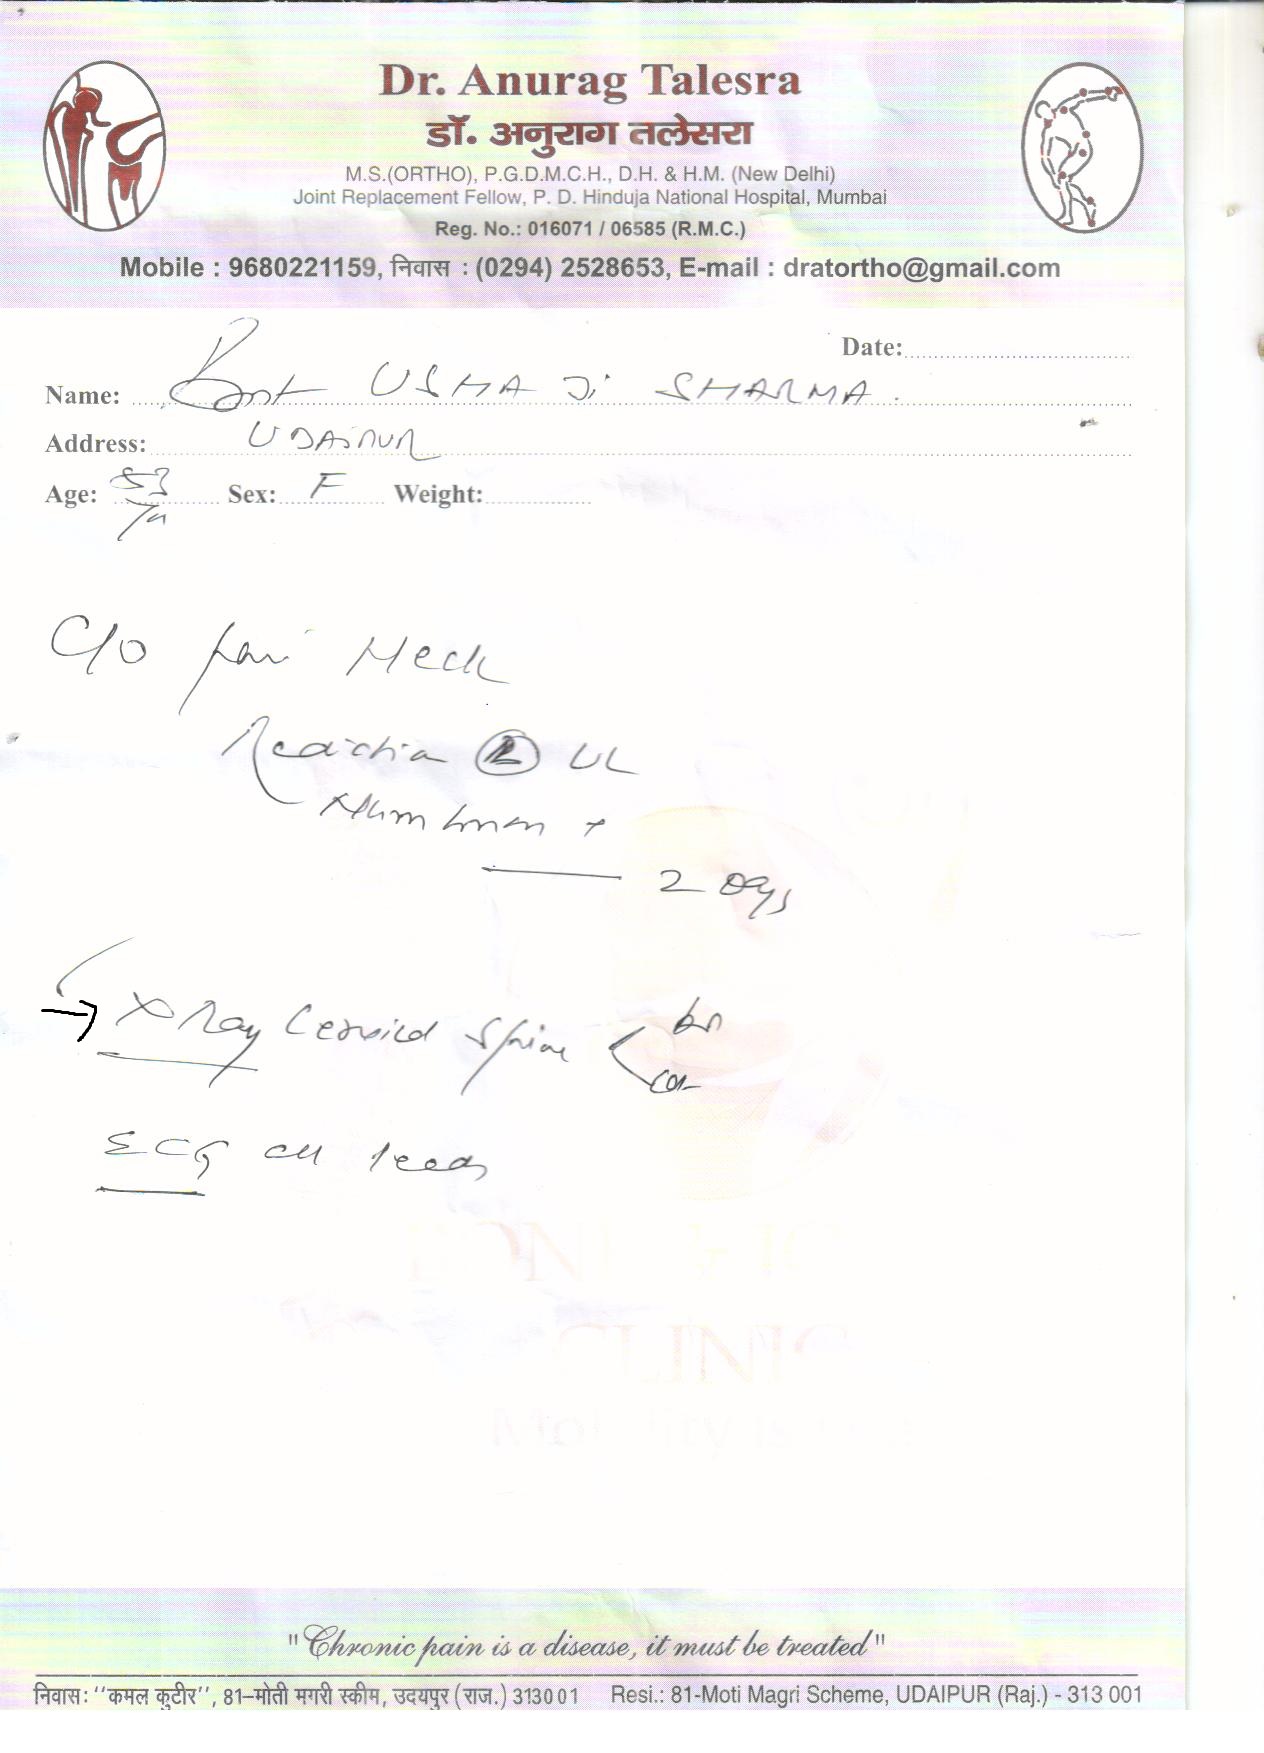 Dr. Anurag Talesra
डॉ. अनुराग तलेसरा
M.S.(ORTHO), P.G.D.M.C.H., D.H. & H.M. (New Delhi)
Joint Replacement Fellow, P. D. Hinduja National Hospital, Mumbai
Reg. No.: 016071 / 06585 (R.M.C.)
Mobile : 9680221159, निवास : (0294) 2528653, E-mail : dratortho@gmail.com
Date:
Name: USHA Ji SHARMA
Address: UDAIPUR
Age: 53 Sex: F Weight:
C/o pain Neck
UL
Numbness +
2 days
→ X Ray Cervical Spine
ECG all leads
CLINIC
"Chronic pain is a disease, it must be treated"
निवास: ''कमल कुटीर'', 81-मोती मगरी स्कीम, उदयपुर (राज.) 313001 Resi.: 81-Moti Magri Scheme, UDAIPUR (Raj.) - 313 001